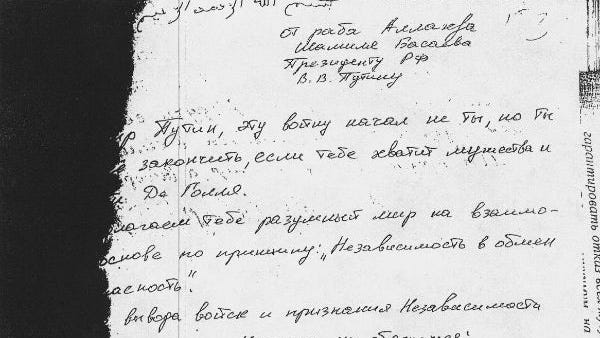 от раба Аллаха
Шамиля Басаева
Президенту РФ
В.В. Путину
р Путин, эту войну начал не ты, но ты
закончить, если тебе хватит мужества и
Де Голля.
лагаем тебе разумный мир на взаимо-
основе по принципу: „Независимость в обмен
асность".
вывода войск и признания Независимости
гарантировать отказ всех